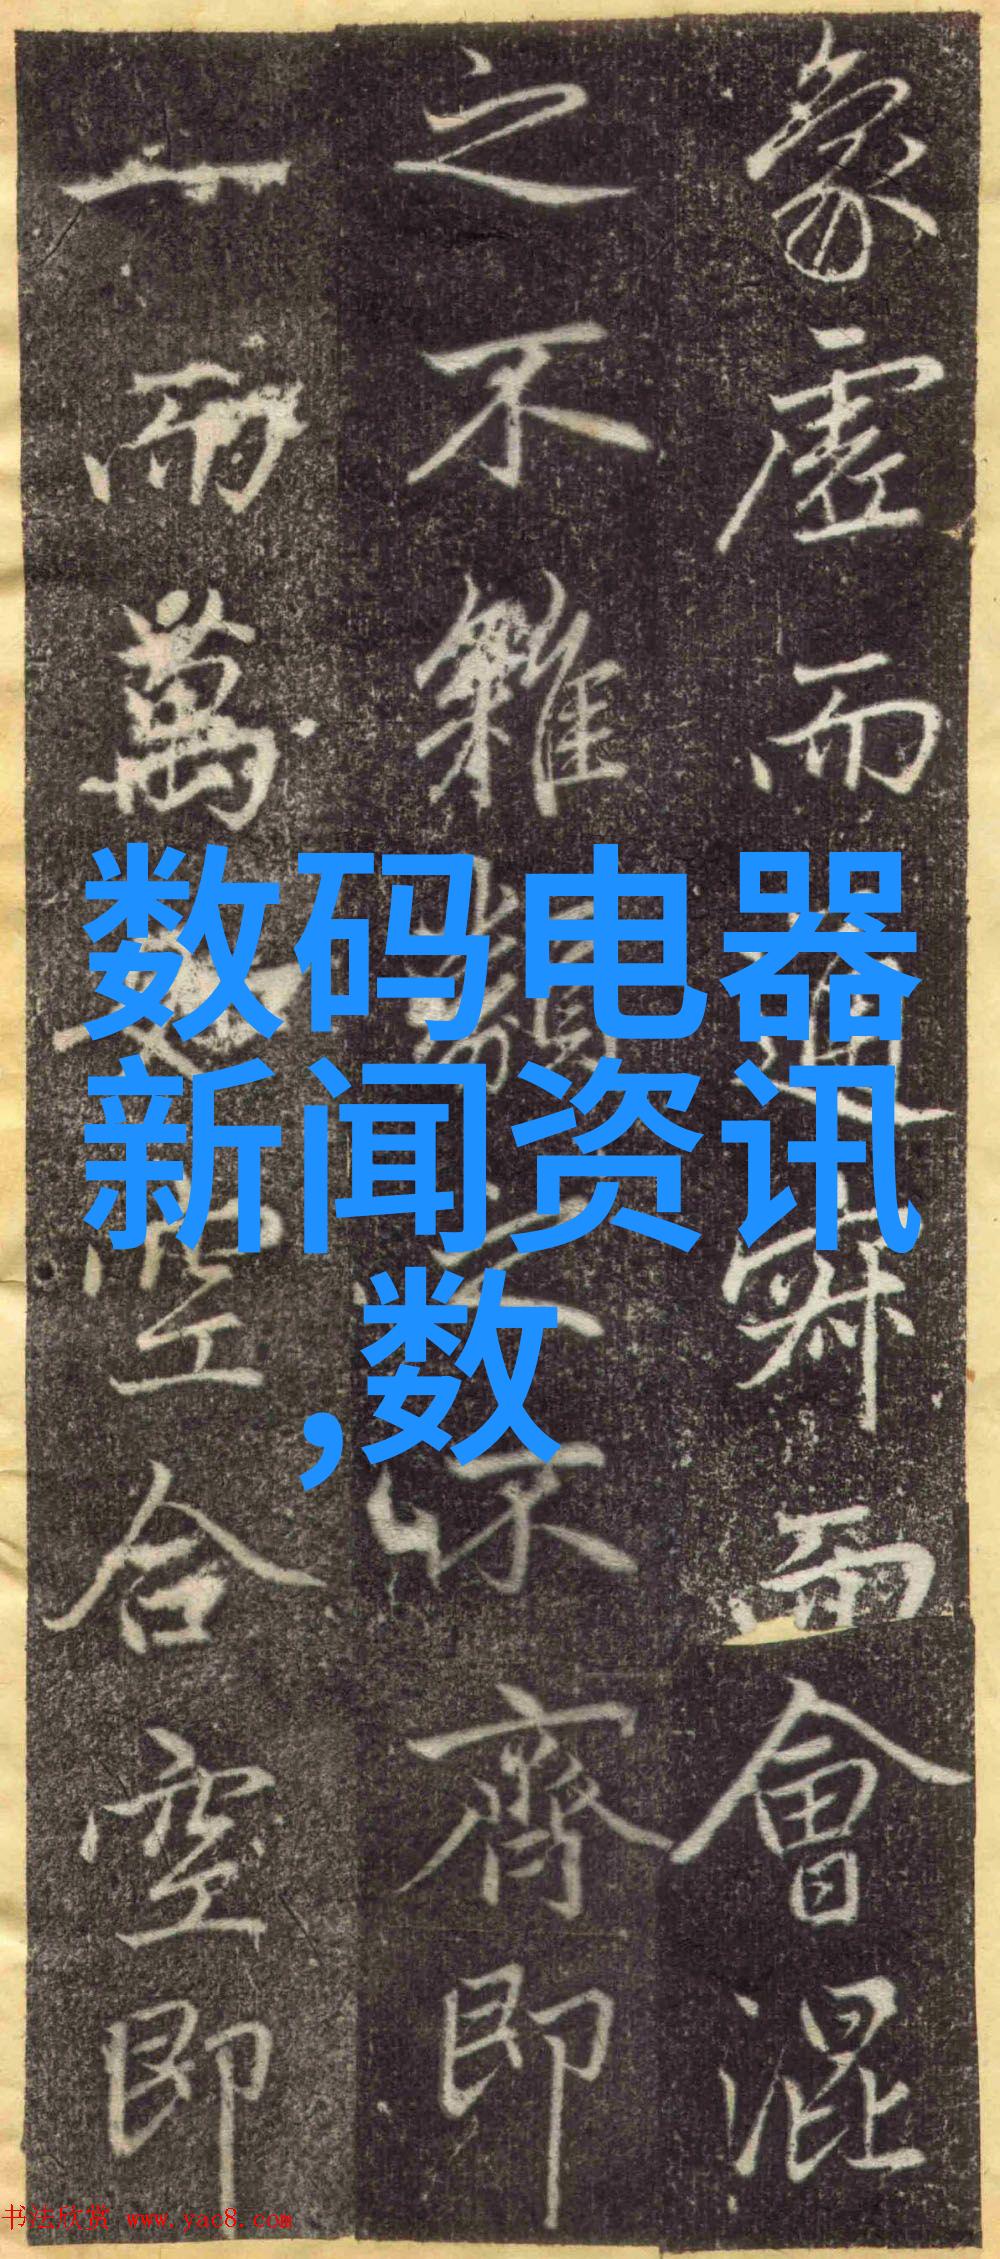 象虛而寂而會混
之不雜類之不齊即
一而萬空合空即
数码电器
新闻资讯
,数
书法欣赏 www.yac8.com